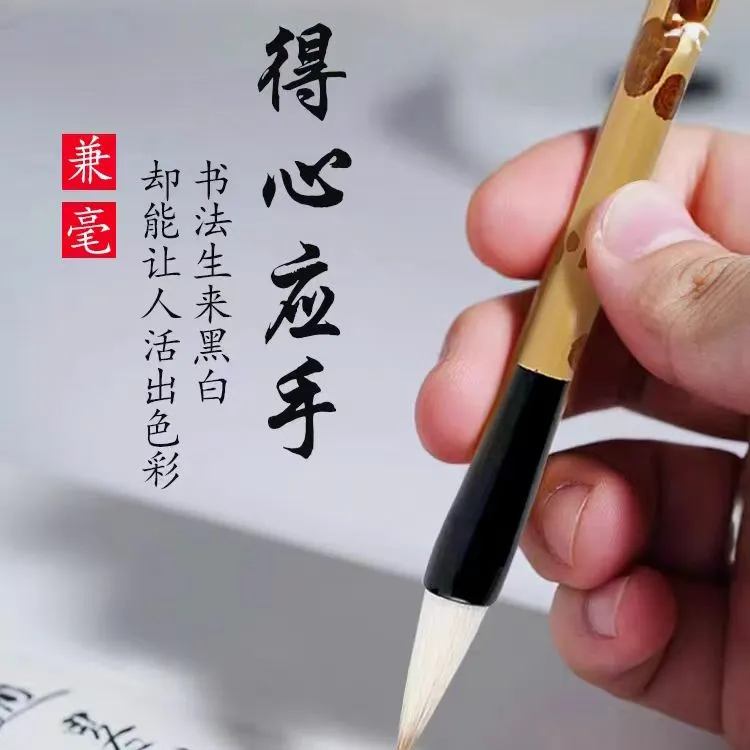 得心应手
书法生来黑白
却能让人活出色彩
兼毫